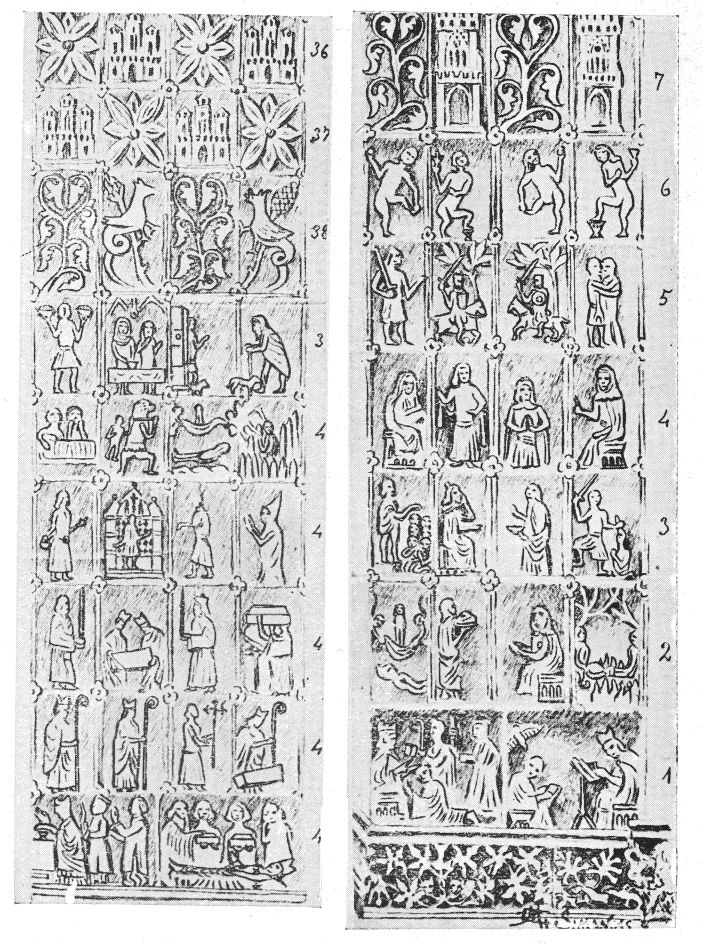 36
37
38
3
4
4
4
4
4
7
6
5
4
3
2
1